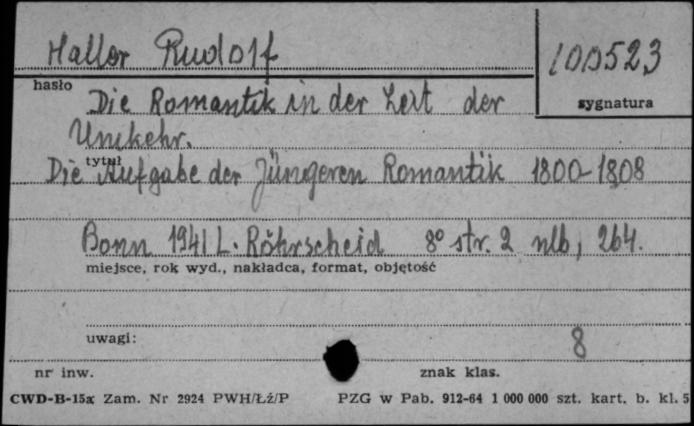 Haller Rudolf
100523
hasło
sygnatura
Die Romantik in der Zeit der
Umkehr.
tytuł
Die Aufgabe der Jüngeren Romantik 1800-1808
Bonn 1941 L. Röhrscheid 8° str. 2 nlb, 264.
miejsce, rok wyd., nakładca, format, objętość
uwagi:
8
nr inw.
znak klas.
CWD-B-15a Zam. Nr 2924 PWH/Łź/P PZG w Pab. 912-64 1 000 000 szt. kart. b. kl. 5